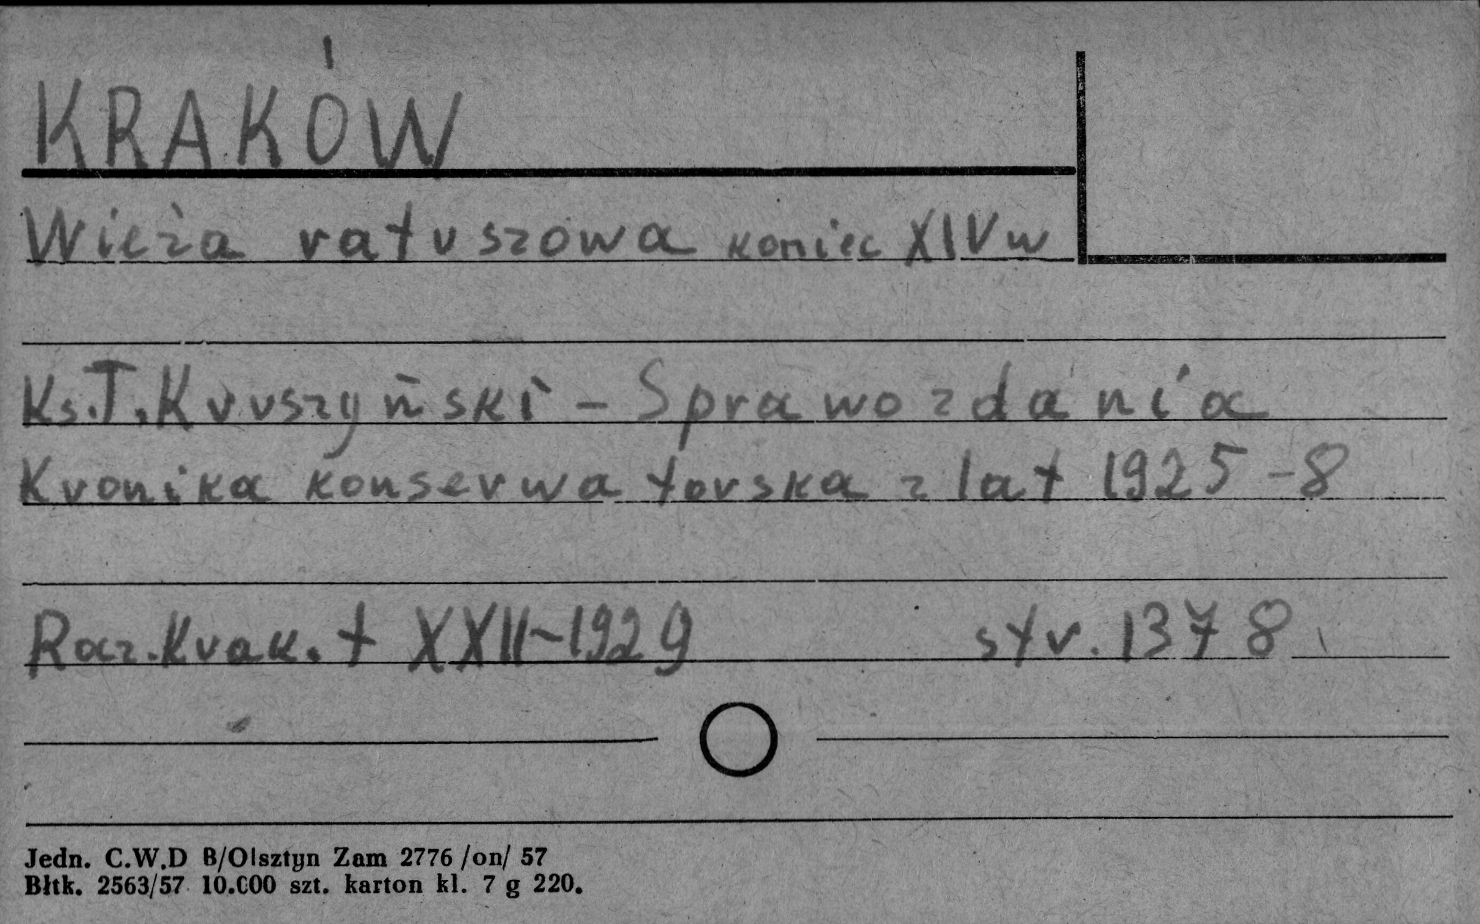 KRAKÓW
Wieża ratuszowa koniec XIV w
Ks. T. Kruszyński - Sprawozdania
Kronika konserwatorska z lat 1925-8
Roz. Krak. t XXII-1929 str. 1378
Jedn. C.W.D B/Olsztyn Zam 2776 /on/ 57
Błtk. 2563/57 10.000 szt. karton kl. 7 g 220.